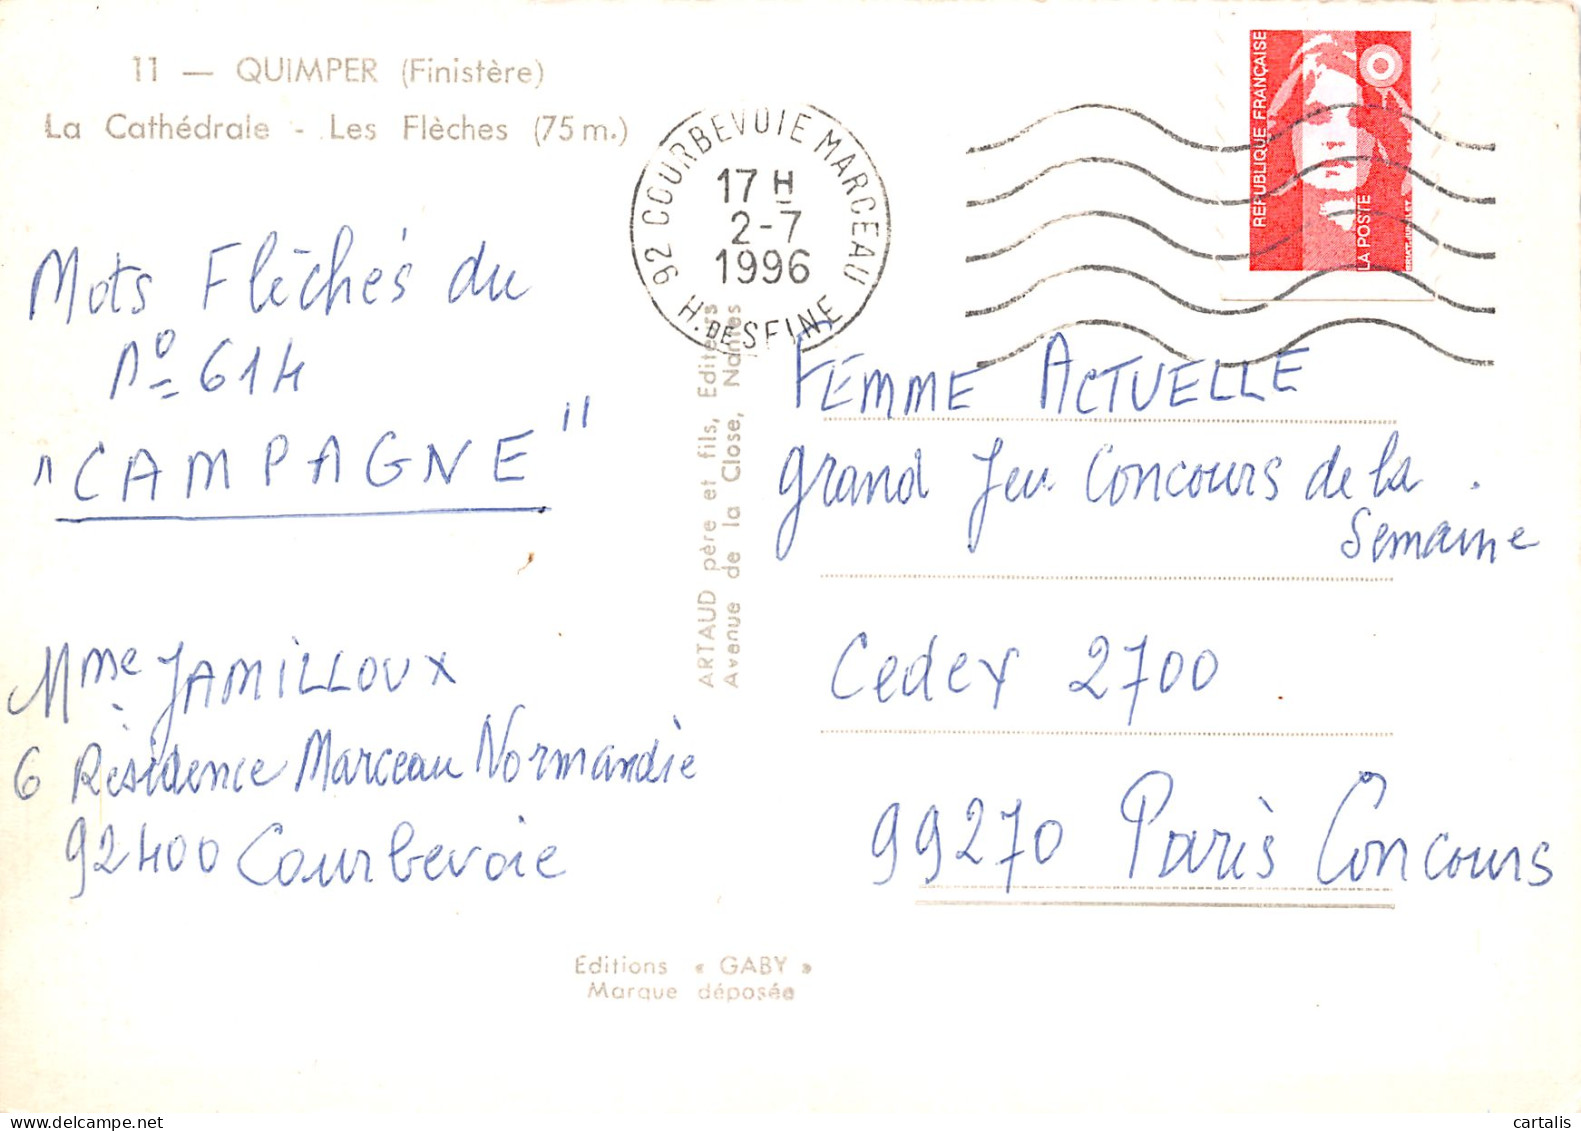 11 — QUIMPER (Finistère)
La Cathédrale - Les Flèches (75 m.)
92 COURBEVOIE MARCEAU
17 H
2-7
1996
H. DE SEINE
REPUBLIQUE FRANÇAISE
LA POSTE
Mots Flèchés du
n° 614
"CAMPAGNE"
Mme JAMILLOUX
6 Résidence Marceau Normandie
92400 Courbevoie
ARTAUD père et fils, Editeurs
Avenue de la Close, Nantes
FEMME ACTUELLE
grand Jeu Concours de la
Semaine
Cedex 2700
99270 Paris Concours
Editions « GABY »
Marque déposée
cartalis